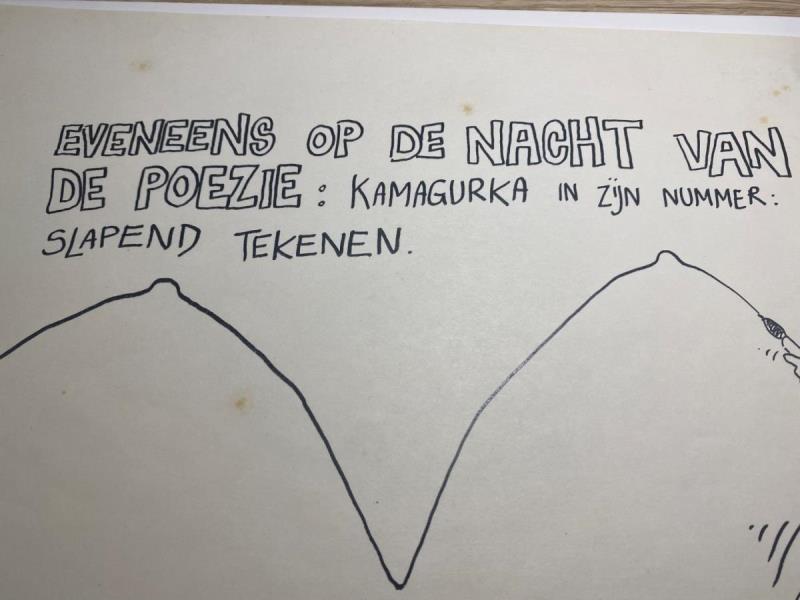 EVENEENS OP DE NACHT VAN
DE POEZIE: KAMAGURKA IN ZIJN NUMMER:
SLAPEND TEKENEN.